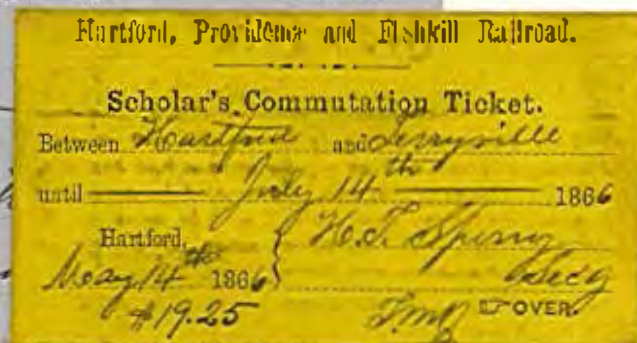 Hartford, Providence and Fishkill Railroad.
Scholar's Commutation Ticket.
Between Hartford and Terryville
until July 14th 1866
Hartford, H. T. Sperry
May 14th 1866 Secy
$19.25 ☞OVER.